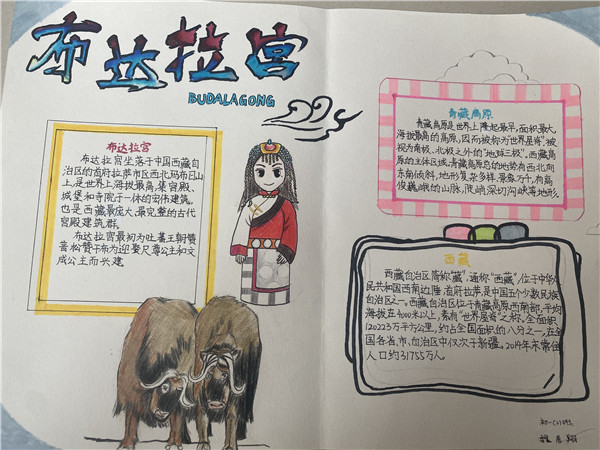 布达拉宫
BUDALAGONG
布达拉宫
布达拉宫坐落于中国西藏自
治区的首府拉萨市区西北玛布日山
上,是世界上海拔最高,集宫殿、
城堡和寺院于一体的宏伟建筑,
也是西藏最庞大、最完整的古代
宫殿建筑群。
布达拉宫最初为吐蕃王朝赞
普松赞干布为迎娶尺尊公主和文
成公主而兴建
青藏高原
青藏高原是世界上隆起最早,面积最大,
海拔最高的高原,因而被称为“世界屋脊”被
视为南极、北极之外的“地球三极”。西藏高
原的主体区域,青藏高原总的地势有西北向
东南倾斜,地形复杂多样,景象万千,有高
俊巍峨的山脉,陡峭深切沟峡等地形
西藏
西藏自治区简称“藏”,通称“西藏”,位于中华人
民共和国西南边陲,首府拉萨,是中国五个少数民族
自治区之一。西藏自治区位于青藏高原西南部,平均
海拔在4000米以上,素有“世界屋脊”之称。全面积
120223万平方公里,约占全国面积的八分之一,在全
国各省、市、自治区中仅次于新疆。2014年末常住
人口约31755万人。